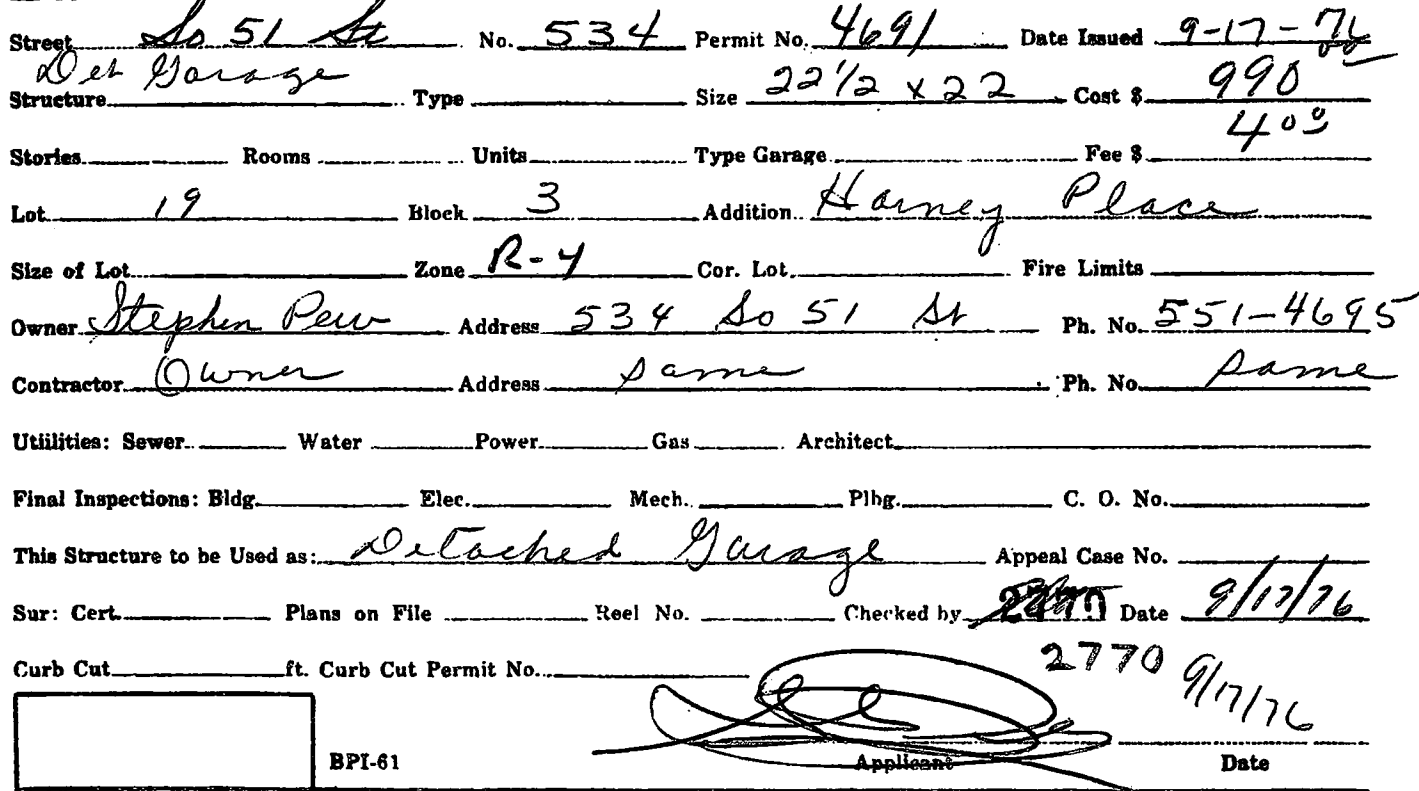 Street So 51 St No. 534 Permit No. 4691 Date Issued 9-17-76
Det Garage
Structure Type Size 22 1/2 x 22 Cost $ 990 00
Stories Rooms Units Type Garage Fee $ 4 00
Lot 19 Block 3 Addition Harney Place
Size of Lot Zone R-4 Cor. Lot Fire Limits
Owner Stephen Pew Address 534 So 51 St Ph. No. 551-4695
Contractor Owner Address Same Ph. No. Same
Utiilities: Sewer Water Power Gas Architect
Final Inspections: Bldg. Elec. Mech. Plbg. C. O. No.
This Structure to be Used as: Detached Garage Appeal Case No.
Sur: Cert. Plans on File Reel No. Checked by Date 9/17/76
Curb Cut ft. Curb Cut Permit No. 2770 9/17/76
BPI-61 Applicant Date